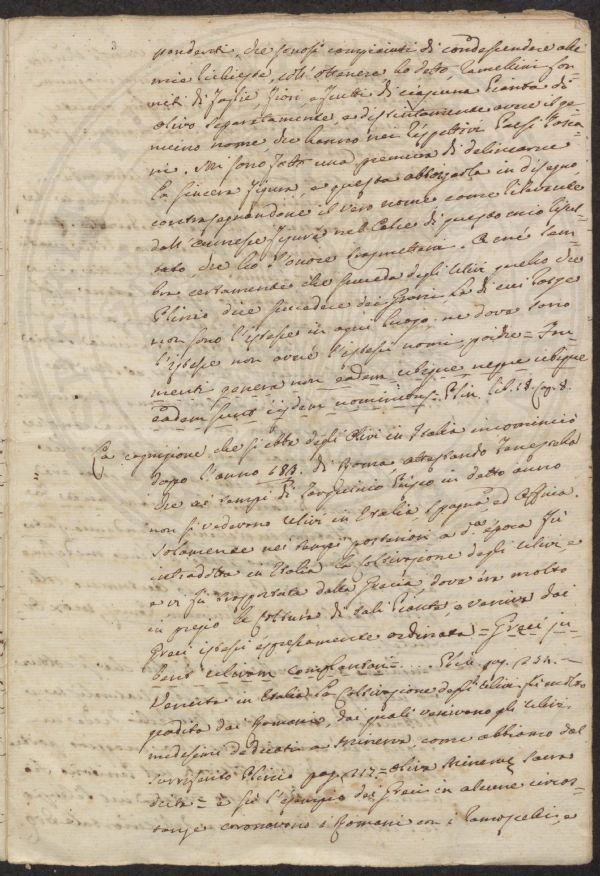 pondenti, che sonosi compiaciuti di condescendere alle
mie richieste, coll' ottenere ho detto, ramellini for-
niti di foglie, fiori e frutti di ciascuna Pianta di
olivo separatamente, e distintamente avere il ge-
nuino nome, che hanno nei rispettivi Paesi Tosca-
ni. Mi sono fatto una premura di delinearne
la sincera figura, e questa abbozzarla in disegno,
contrasegnandone il vero nome come rilevarete
dall' annesse figure nel Calce di questo mio
tato che ho l'onore trasmettarvi. A me sem-
bra certamente che succeda degli Ulivi quello che
Plinio dice succedere dei Grani. La di cui
non sono l'istesse in ogni luogo, ne dove sono
l'istesse non avere l'istessi nomi, poiche = Fru-
menti genera non eadem ubique neque ubique
eadem sunt iisdem nominibus = Plin. lib. 18. Cap. 8.
La cognizione che si ebbe degli Olivi in Italia incominciò
doppo l'anno 183. di Roma, attestando Fenestella
che ai tempi di Tarquinio Prisco in detto anno
non si vedevano Ulivi in Italia Spagna, ed Affrica.
Solamente nei tempi posteriori a dª epoca fù
introdotta in Italia la Coltivazione degli Ulivi, e
e vi fù trasportata dalla Grecia, dove era molto
in pregio la Coltura di tali Piante, e veniva dai
Greci istessi espressamente ordinata = Greci ju-
bent ulivam complantari = .... pag. 234. —
Venuta in Italia la Coltivazione degl' Ulivi fù molto
gradita dai Romani, dai quali venivano gli Ulivi
medesimi dedicati a Minerva, come abbiamo dal
surriferito Plinio pag. 217 = Oliva Minerve Sacra
= e sù l'esempio dei Greci in alcune circos-
tanze coronavono i Romani con i ramoscelli, e